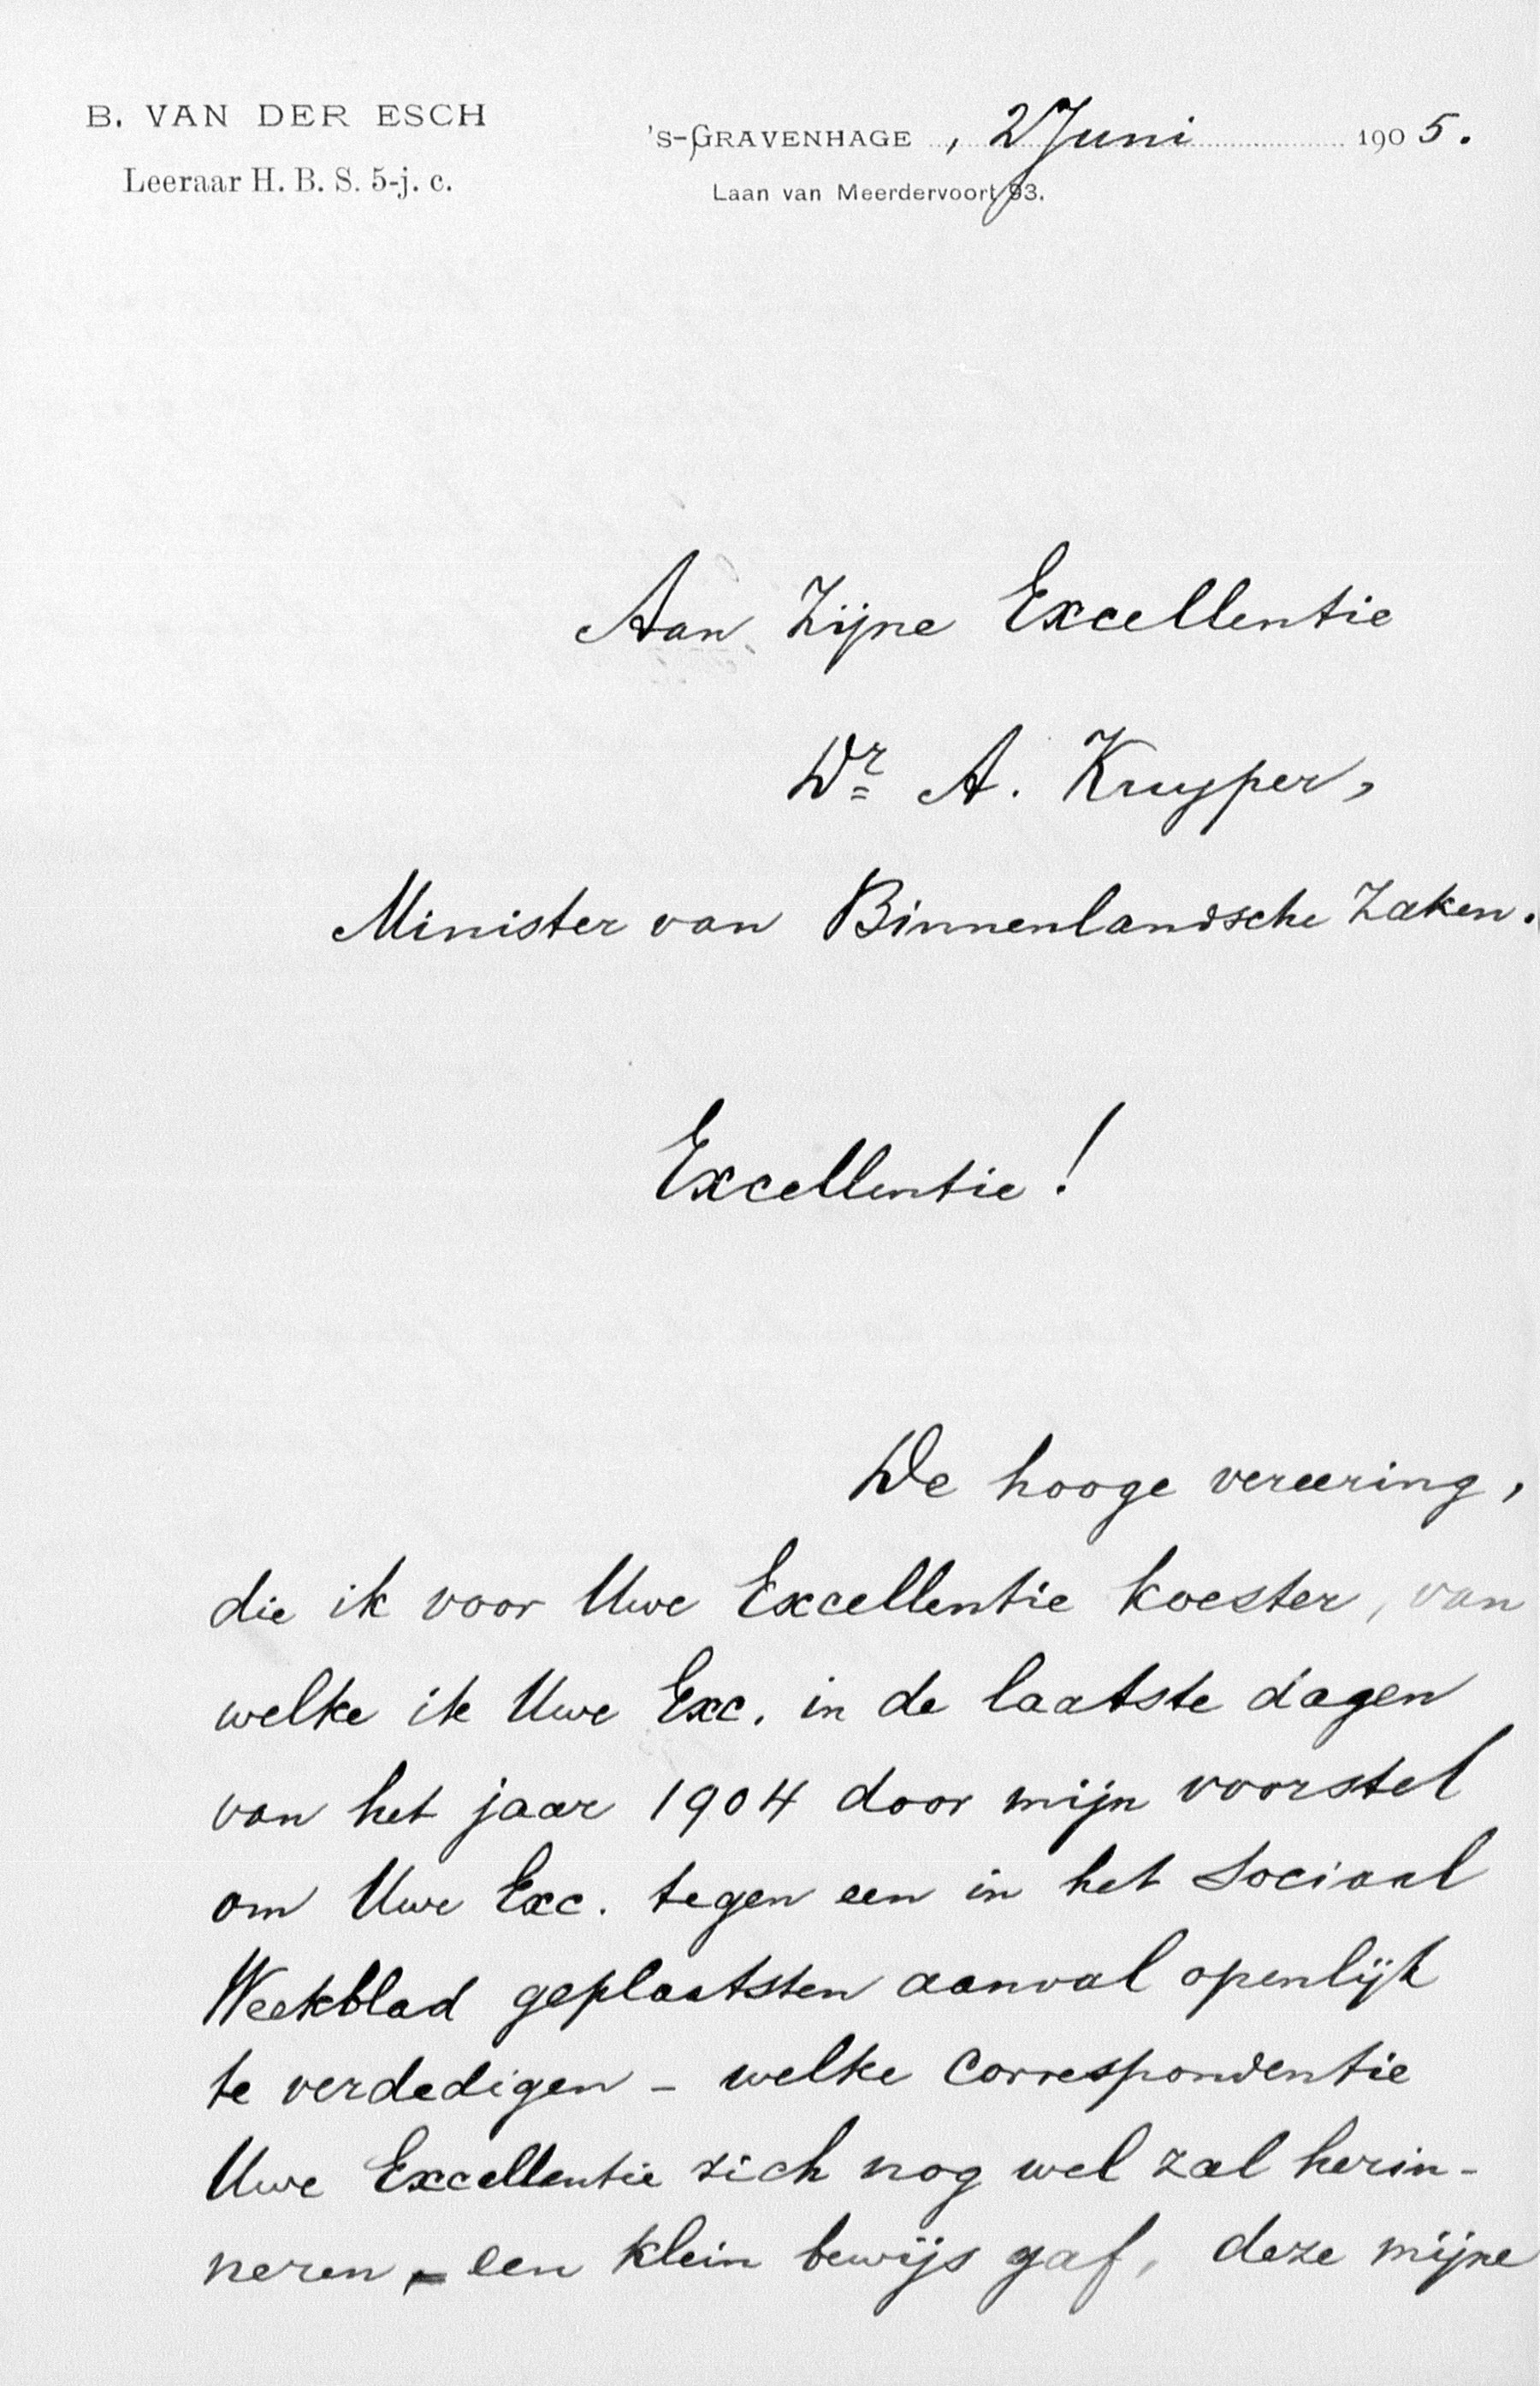 B. VAN DER ESCH
Leeraar H. B. S. 5-j. c.
'S-GRAVENHAGE, 2 Juni 1905.
Laan van Meerdervoort 93.
Aan Zijne Excellentie
Dr A. Kuyper,
Minister van Binnenlandsche Zaken.
Excellentie!
De hooge vereering,
die ik voor Uwe Excellentie koester, van
welke ik Uwe Exc. in de laatste dagen
van het jaar 1904 door mijn voorstel
om Uwe Exc. tegen een in het Sociaal
Weekblad geplaatsten aanval openlijk
te verdedigen - welke correspondentie
Uwe Excellentie zich nog wel zal herin-
neren, - een klein bewijs gaf, deze mijne